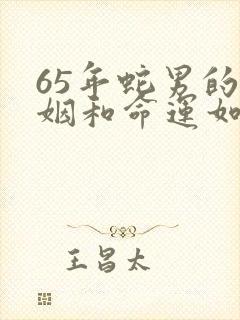 65年蛇男的
姻和命運如
王昌太